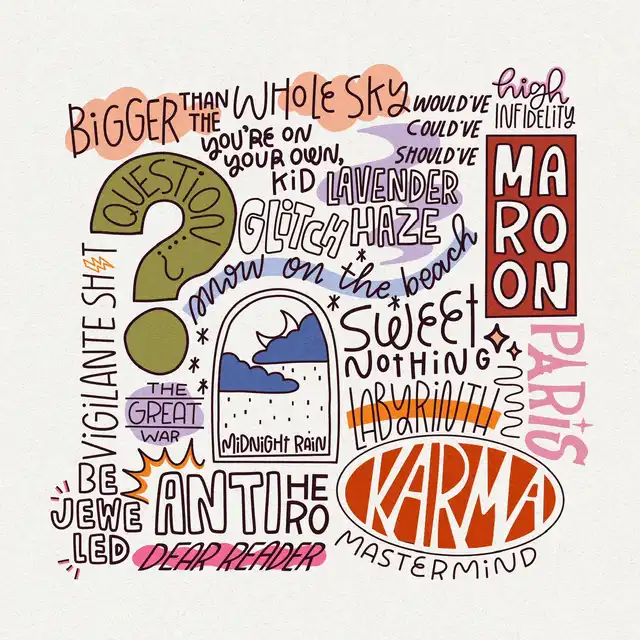 BiGGER THAN THE WHOLE SKY
WOULD'VE COULD'VE SHOULD'VE
high INFIDELITY
YOU'RE ON YOUR OWN, KiD
LAVENDER HAZE
MAROON
QUESTION...?
GLiTCH
snow on the beach
ViGiLANTE SH⚡T
SWEET NOTHING
PARiS
THE GREAT WAR
MiDNiGHt RAiN
LABYRiNTH
BE JEWELED
ANTI HERO
KARMA
DEAR READER
MASTERMiND